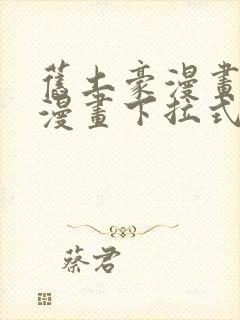 舊土豪漫畫
漫畫下拉式
蔡君